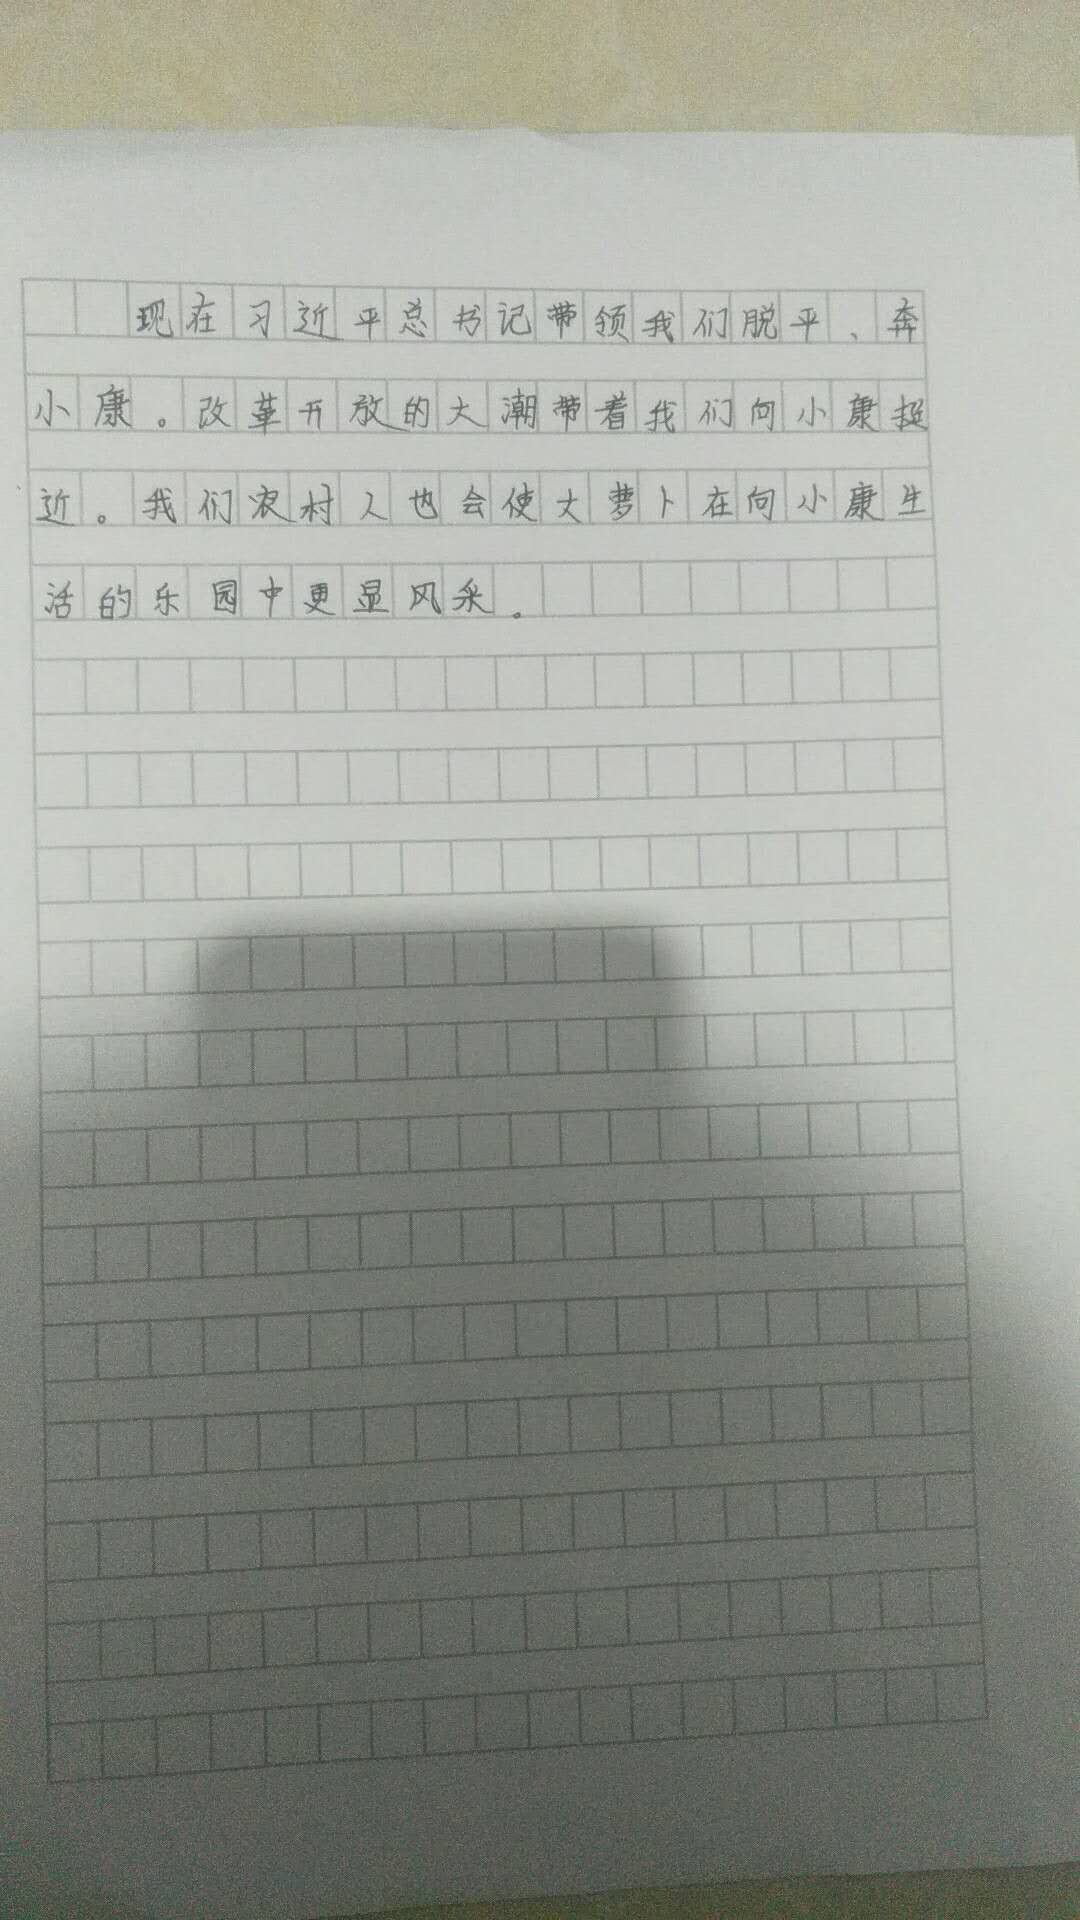 现在习近平总书记带领我们脱平、奔
小康。改革开放的大潮带着我们向小康挺
近。我们农村人也会使大萝卜在向小康生
活的乐园中更显风采。